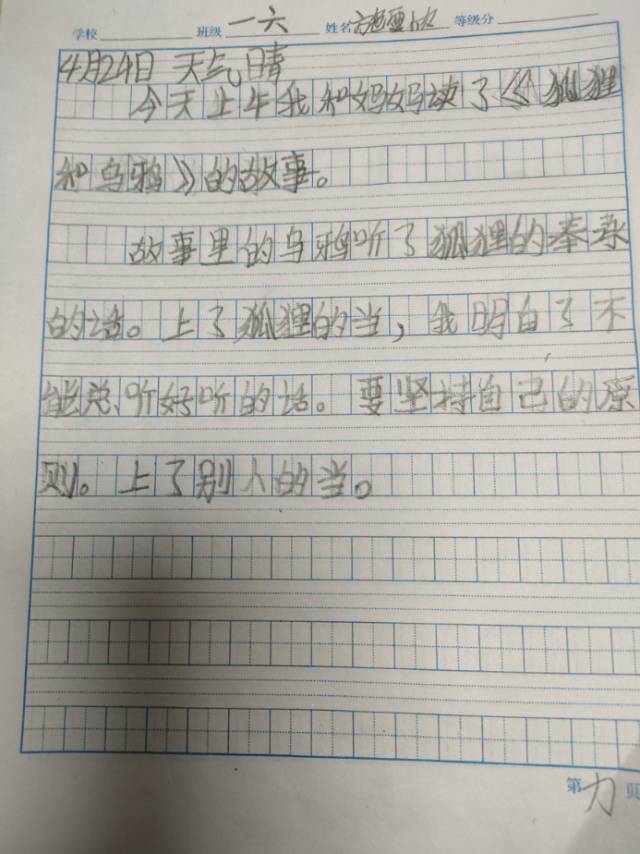 学校 班级 一六 姓名 等级分
4月24日 天气晴
今天上午我和妈妈读了《狐狸
和乌鸦》的故事。
故事里的乌鸦听了狐狸的奉承
的话。上了狐狸的当，我明白了不
能总听好听的话。要坚持自己的原
则。上了别人的当。
第 页